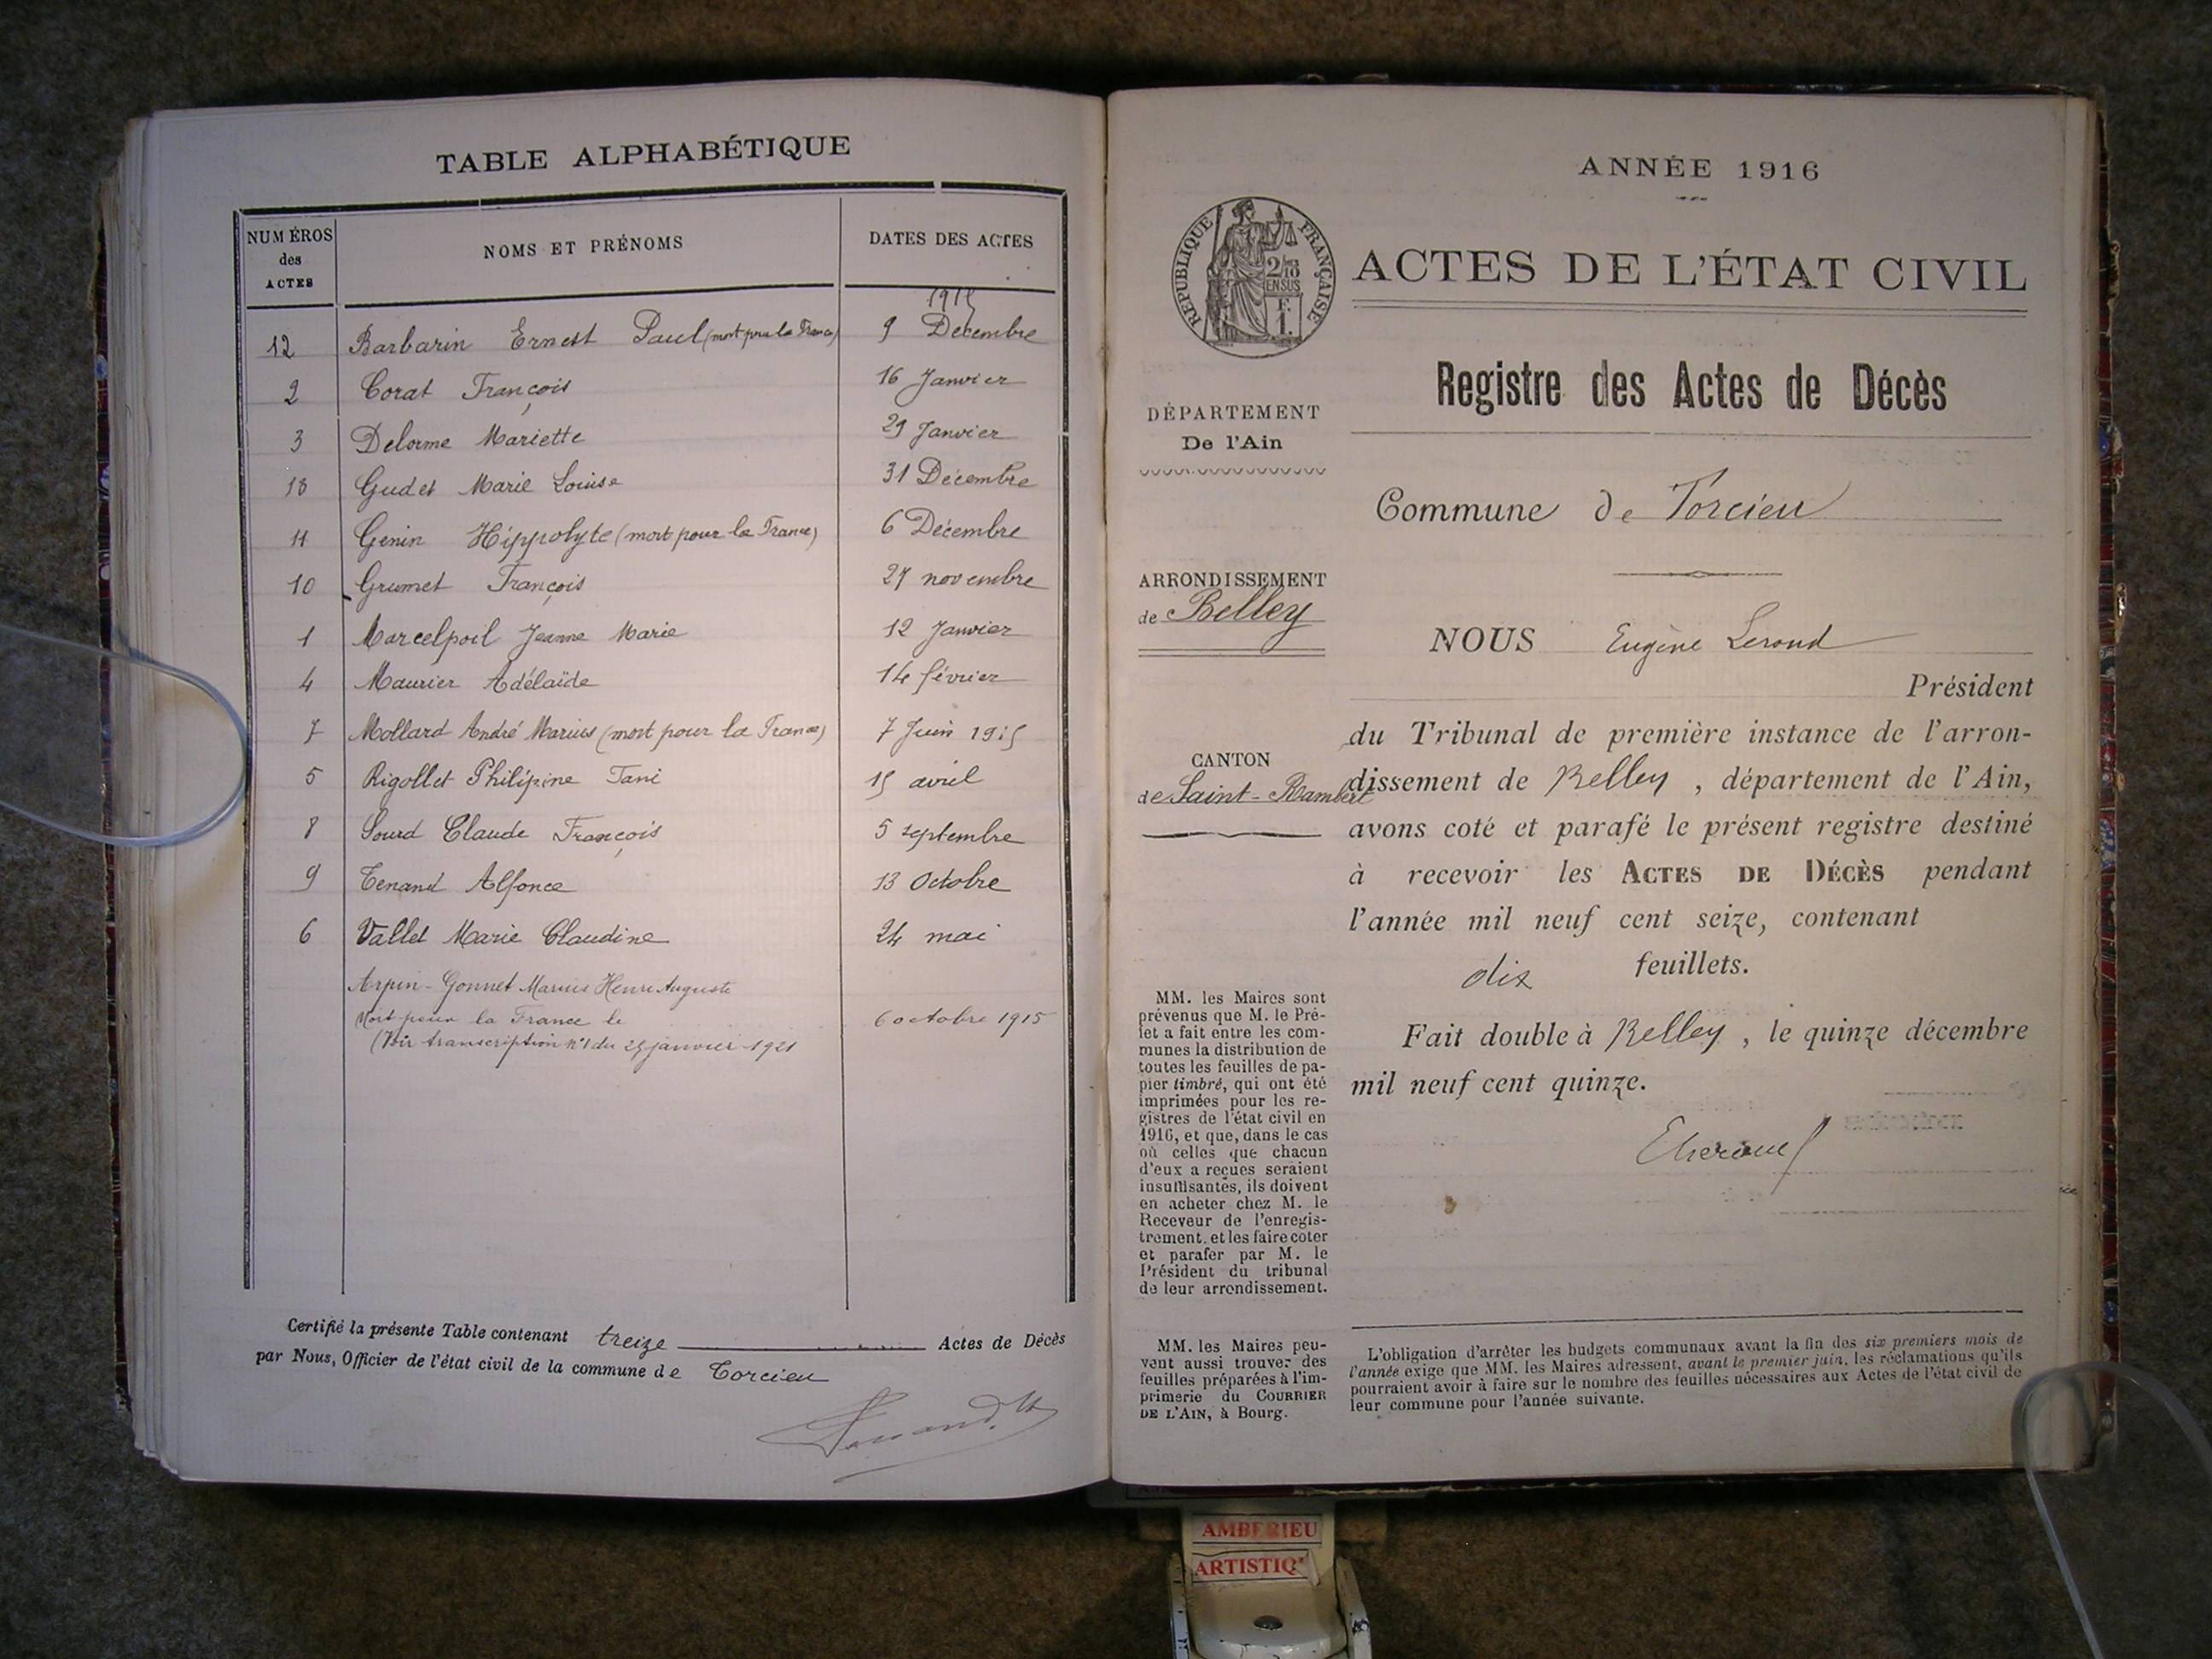 TABLE ALPHABÉTIQUE
NUMÉROS
des
ACTES
NOMS ET PRÉNOMS
DATES DES ACTES
1915
12 Barbarin Ernest Paul (mort pour la France) 9 Décembre
2 Corat François 16 Janvier
3 Delorme Mariette 29 Janvier
13 Gudet Marie Louise 31 Décembre
11 Genin Hippolyte (mort pour la France) 6 Décembre
10 Grumet François 27 novembre
1 Marcelpoil Jeanne Marie 12 Janvier
4 Maurier Adélaïde 14 février
7 Mollard André Marius (mort pour la France) 7 Juin 1915
5 Rigollet Philipine Fani 15 avril
8 Sourd Claude François 5 septembre
9 Tenand Alfonce 13 Octobre
6 Vallet Marie Claudine 24 mai
Arpin-Gonnet Marius Henri Auguste
Mort pour la France le 6 octobre 1915
(Voir transcription n°1 du 25 janvier 1921
Certifié la présente Table contenant treize Actes de Décès
par Nous, Officier de l'état civil de la commune de Torcieu
ANNÉE 1916
RÉPUBLIQUE FRANÇAISE
ACTES DE L'ÉTAT CIVIL
Registre des Actes de Décès
DÉPARTEMENT
De l'Ain
Commune de Torcieu
ARRONDISSEMENT
de Belley
NOUS Eugène Lerond
Président
du Tribunal de première instance de l'arron-
CANTON
de Saint-Rambert
dissement de Belley, département de l'Ain,
avons coté et parafé le présent registre destiné
à recevoir les ACTES DE DÉCÈS pendant
l'année mil neuf cent seize, contenant
dix feuillets.
Fait double à Belley, le quinze décembre
mil neuf cent quinze.
MM. les Maires sont
prévenus que M. le Pré-
fet a fait entre les com-
munes la distribution de
toutes les feuilles de pa-
pier timbré, qui ont été
imprimées pour les re-
gistres de l'état civil en
1916, et que, dans le cas
où celles que chacun
d'eux a reçues seraient
insuffisantes, ils doivent
en acheter chez M. le
Receveur de l'enregis-
trement, et les faire coter
et parafer par M. le
Président du tribunal
de leur arrondissement.
MM. les Maires peu-
vent aussi trouver des
feuilles préparées à l'im-
primerie du COURRIER
DE L'AIN, à Bourg.
L'obligation d'arrêter les budgets communaux avant la fin des six premiers mois de
l'année exige que MM. les Maires adressent, avant le premier juin, les réclamations qu'ils
pourraient avoir à faire sur le nombre des feuilles nécessaires aux Actes de l'état civil de
leur commune pour l'année suivante.
AMBERIEU
ARTISTIQ'